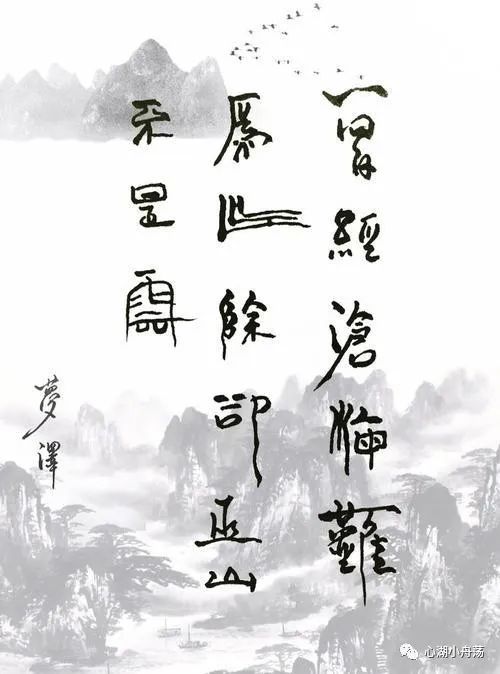 曾經滄海難
爲水除卻巫山
不是雲
夢澤
心湖小舟荡